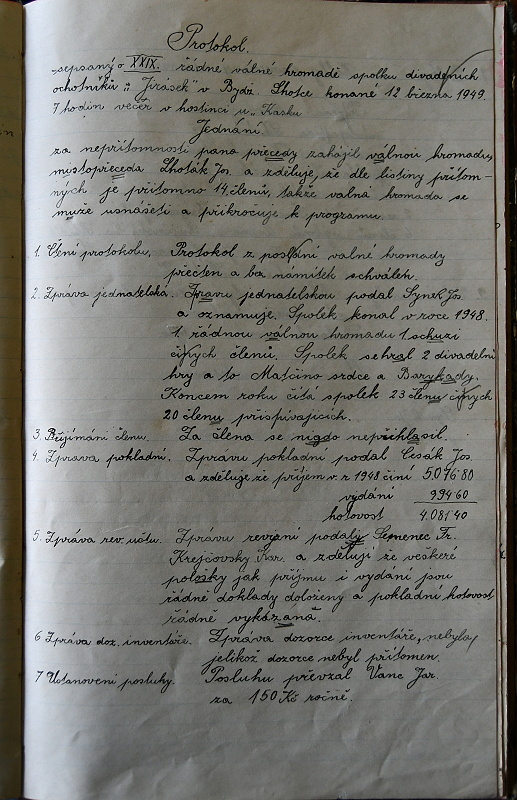 Protokol.
sepsaný o XXIX. řádné válné hromadě spolku divadelních
ochotníků "Jirásek" v Bydž. Lhotce konané 12. března 1949.
7 hodin večer v hostinci u "Kasku
Jednání.
za nepřítomnosti pana přecedy zahájil válnou hromadu
místopřeceda Lhoták Jos. a zděluje, že dle listiny přítom-
ných je přítomno 14. členů, takže valná hromada se
může usnášeti a přikročuje k programu.
1. Čtení protokolu, Protokol z poslání valné hromady
přečten a bez námitek schválen.
2. Zpráva jednatelská. Zpravu jednatelskou podal Synek Jos
a oznamuje. Spolek konal v roce 1948.
1. řádnou válnou hromadu 1. schuzi
činých členů. Spolek sehrál 2 divadelní
hry a to Matčino srdce a Barykady.
Koncem roku čítá spolek 23 členu činých
20 členu přispívajících.
3. Přijímání členu. Za člena se nigdo nepřihlasil.
4. Zprava pokladní. Zprávu pokladní podal Cesák Jos.
a zděluje že příjem v r. 1948 činí 5.076·80
vydání 994 60
hotovost 4.081'40
5. Zpráva rev. učtu. Zprávu revizní podaly Semenec Fr.
Krejčovsky a zdělují že veškeré
položky jak příjmu i vydání jsou
řádně doklady doloženy a pokladní hotovost
řádně vykázaná.
6 Zpráva doz. inventáře. Zpráva dozorce inventáře, nebyla,
jelikož dozorce nebyl přítomen.
7 Ustanovení posluhy. Posluhu převzal Vanc Jar.
za 150 Kč ročně.